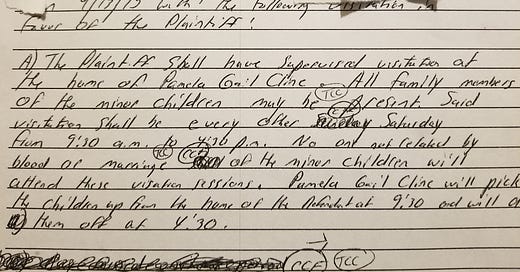 9/17/13 with the following visitation in
favor of the Plaintiff!
A) The Plaintiff shall have supervised visitation at
the home of Pamela Gail Cline TCC All family members
of the minor children may be present Said
visitation shall be every other Saturday
from 9:30 a.m. to 4:30 p.m. No one not related by
blood or marriage of the minor children will
attend these visitation sessions. Pamela Gail Cline will pick
the children up from the home of the Defendant at 9:30 and will
them off at 4:30.
CCF TCC